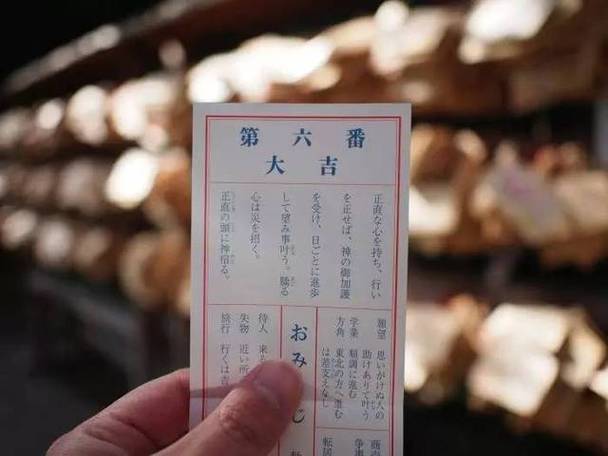 第六番
大吉
正直な心を持ち、行い
を正せば、神の御加護
を受け、日ごとに進歩
して望み事叶う。驕る
心は災を招く。
正直の頭に神宿る。
願望 思いがけぬ人の
助けありて叶う
学業 順調に進む
方角 東北の方へ進む
は差支えなし
おみ じ
待人 来
失物 近い所
旅行 行くは吉